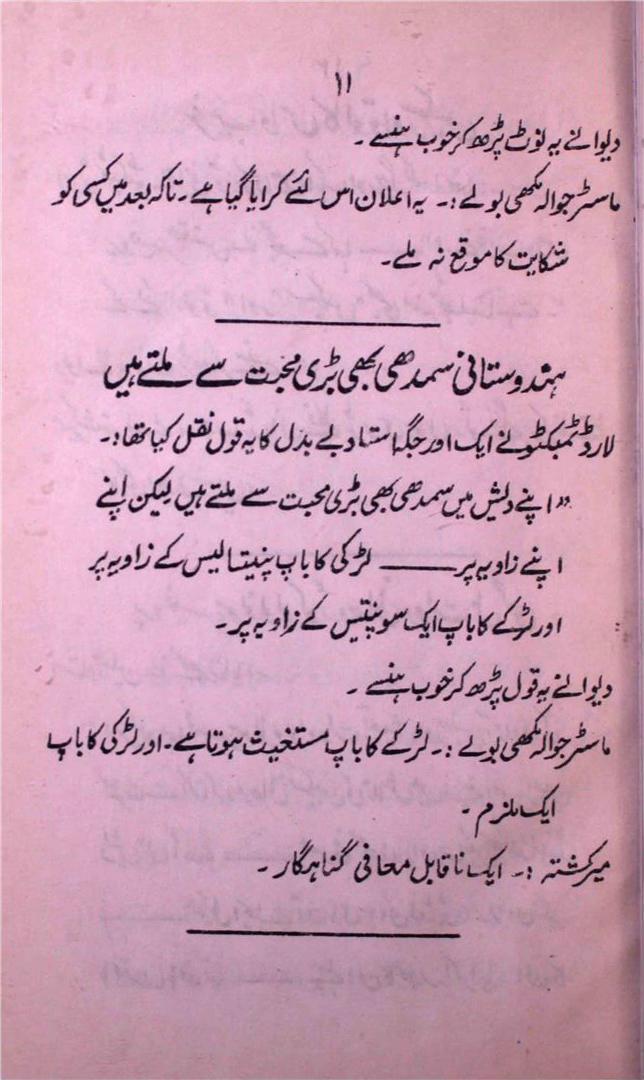 ۱۱
دیوانے یہ نوٹ پڑھ کر خوب ہنسے ۔
ماسٹر جوالہ مکھی بولے :۔ یہ اعلان اس لئے کرایا گیا ہے ۔ تاکہ بعد میں کسی کو
شکایت کا موقع نہ ملے ۔
ہندوستانی سمدھی بھی بڑی محبت سے ملتے ہیں
لارڈ ٹمبکٹو نے ایک اور جگہ استاد بے بدل کا یہ قول نقل کیا تھا :۔
”اپنے دیش میں سمدھی بھی بڑی محبت سے ملتے ہیں لیکن اپنے
اپنے زاویہ پر ـــــــ لڑکی کا باپ پنیتالیس کے زاویہ پر
اور لڑکے کا باپ ایک سو پنتیس کے زاویہ پر ۔
دیوانے یہ قول پڑھ کر خوب ہنسے ۔
ماسٹر جوالہ مکھی بولے :۔ لڑکے کا باپ مستغیث ہوتا ہے ۔ اور لڑکی کا باپ
ایک ملزم ۔
میر کشتہ :۔ ایک ناقابل معافی گناہگار ۔